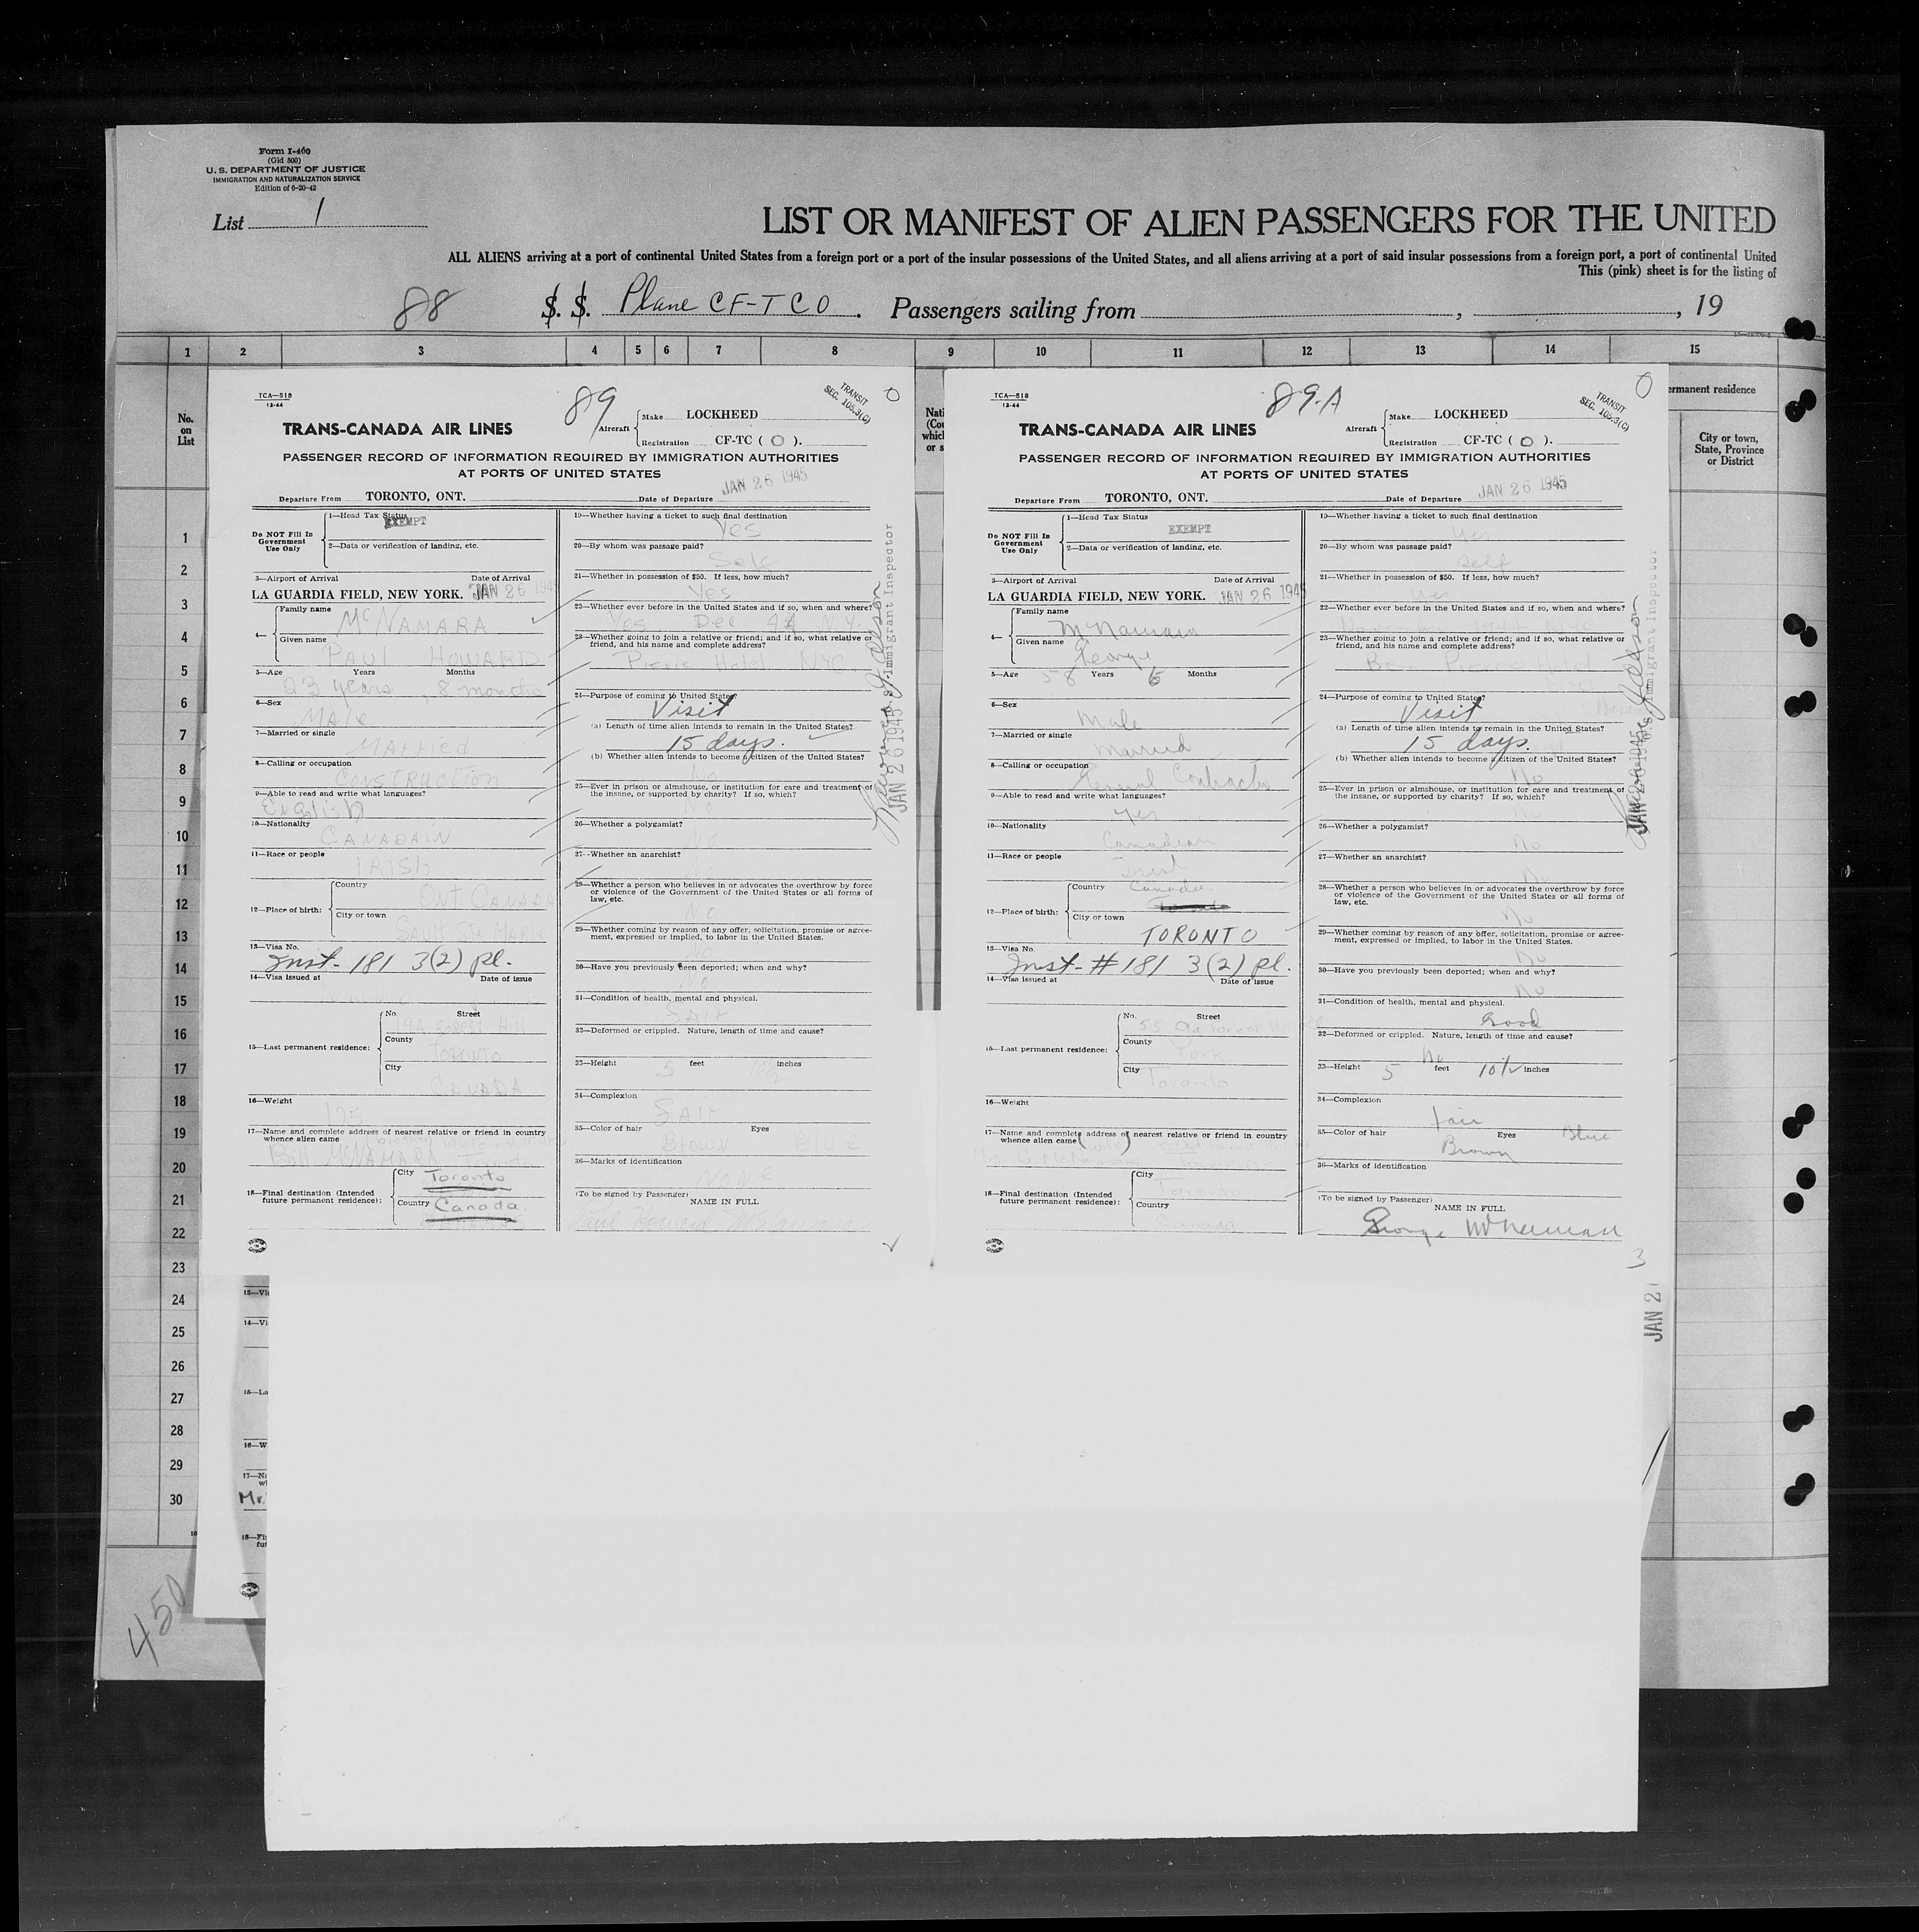 Form I-460
(Old 500)
U. S. DEPARTMENT OF JUSTICE
IMMIGRATION AND NATURALIZATION SERVICE
Edition of 6-20-42
List 1
LIST OR MANIFEST OF ALIEN PASSENGERS FOR THE UNITED
ALL ALIENS arriving at a port of continental United States from a foreign port or a port of the insular possessions of the United States, and all aliens arriving at a port of said insular possessions from a foreign port, a port of continental United
This (pink) sheet is for the listing of
88 S. S. Plane CF-TCO. Passengers sailing from , , 19
1 2 3 4 5 6 7 8 9 10 11 12 13 14 15
No.
on
List
1
2
3
4
5
6
7
8
9
10
11
12
13
14
15
16
17
18
19
20
21
22
23
24
25
26
27
28
29
30
450
TCA—518
12-44
89
TRANSIT
SEC. 105.3(C)
0
TRANS-CANADA AIR LINES
Aircraft
Make LOCKHEED
Registration CF-TC ( O ).
PASSENGER RECORD OF INFORMATION REQUIRED BY IMMIGRATION AUTHORITIES
AT PORTS OF UNITED STATES
Departure From TORONTO, ONT. Date of Departure JAN 26 1945
Do NOT Fill In
Government
Use Only
1—Head Tax Status
EXEMPT
2—Data or verification of landing, etc.
3—Airport of Arrival Date of Arrival
LA GUARDIA FIELD, NEW YORK. JAN 26 194
4— Family name
McNAMARA
Given name
PAUL HOWARD
5—Age Years Months
23 years, 8 months
6—Sex
MALE
7—Married or single
MARRIED
8—Calling or occupation
CONSTRUCTION
9—Able to read and write what languages?
English
10—Nationality
CANADAIN
11—Race or people
IRISH
12—Place of birth:
Country
ONT CANADA
City or town
SAULT Ste MARIE
13—Visa No.
Inst- 181 3(2) pl.
14—Visa issued at Date of issue
15—Last permanent residence:
No. Street
County
TORONTO
City
CANADA
16—Weight
175
17—Name and complete address of nearest relative or friend in country
whence alien came
Bill McNAMARA
18—Final destination (Intended
future permanent residence):
City
Toronto
Country
Canada
19—Whether having a ticket to such final destination
Yes
20—By whom was passage paid?
Self
21—Whether in possession of $50. If less, how much?
Yes
22—Whether ever before in the United States and if so, when and where?
Yes Dec 44 N.Y.
23—Whether going to join a relative or friend; and if so, what relative or
friend, and his name and complete address?
Pierre Hotel NYC
24—Purpose of coming to United States?
Visit
(a) Length of time alien intends to remain in the United States?
15 days.
(b) Whether alien intends to become a citizen of the United States?
No
25—Ever in prison or almshouse, or institution for care and treatment of
the insane, or supported by charity? If so, which?
No
26—Whether a polygamist?
No
27—Whether an anarchist?
28—Whether a person who believes in or advocates the overthrow by force
or violence of the Government of the United States or all forms of
law, etc.
No
29—Whether coming by reason of any offer, solicitation, promise or agree-
ment, expressed or implied, to labor in the United States.
No
30—Have you previously been deported; when and why?
No
31—Condition of health, mental and physical.
32—Deformed or crippled. Nature, length of time and cause?
33—Height 5 feet 10½ inches
34—Complexion
FAIR
35—Color of hair Eyes
BROWN Blue
36—Marks of identification
NONE
(To be signed by Passenger)
NAME IN FULL
Paul Howard
JAN 26 1945
Immigrant Inspector
TCA—518
12-44
89-A
TRANSIT
SEC. 105.3(C)
0
TRANS-CANADA AIR LINES
Aircraft
Make LOCKHEED
Registration CF-TC ( O ).
PASSENGER RECORD OF INFORMATION REQUIRED BY IMMIGRATION AUTHORITIES
AT PORTS OF UNITED STATES
Departure From TORONTO, ONT. Date of Departure JAN 26 1945
Do NOT Fill In
Government
Use Only
1—Head Tax Status
EXEMPT
2—Data or verification of landing, etc.
3—Airport of Arrival Date of Arrival
LA GUARDIA FIELD, NEW YORK. JAN 26 1945
4— Family name
McNamara
Given name
George
5—Age 58 Years 6 Months
6—Sex
Male
7—Married or single
Married
8—Calling or occupation
General Contractor
9—Able to read and write what languages?
Yes
10—Nationality
Canadian
11—Race or people
Irish
12—Place of birth:
Country
Canada
City or town
TORONTO
13—Visa No.
Inst- # 181 3(2) pl.
14—Visa issued at Date of issue
15—Last permanent residence:
No. Street
County
York
City
Toronto
16—Weight
17—Name and complete address of nearest relative or friend in country
whence alien came
18—Final destination (Intended
future permanent residence):
City
Toronto
Country
Canada
19—Whether having a ticket to such final destination
Yes
20—By whom was passage paid?
Self
21—Whether in possession of $50. If less, how much?
Yes
22—Whether ever before in the United States and if so, when and where?
23—Whether going to join a relative or friend; and if so, what relative or
friend, and his name and complete address?
24—Purpose of coming to United States?
Visit
(a) Length of time alien intends to remain in the United States?
15 days.
(b) Whether alien intends to become a citizen of the United States?
No
25—Ever in prison or almshouse, or institution for care and treatment of
the insane, or supported by charity? If so, which?
No
26—Whether a polygamist?
No
27—Whether an anarchist?
No
28—Whether a person who believes in or advocates the overthrow by force
or violence of the Government of the United States or all forms of
law, etc.
No
29—Whether coming by reason of any offer, solicitation, promise or agree-
ment, expressed or implied, to labor in the United States.
No
30—Have you previously been deported; when and why?
No
31—Condition of health, mental and physical.
Good
32—Deformed or crippled. Nature, length of time and cause?
No
33—Height 5 feet 10½ inches
34—Complexion
Fair
35—Color of hair Eyes Blue
Brown
36—Marks of identification
(To be signed by Passenger)
NAME IN FULL
George McNamara
3
JAN 26 1945
Immigrant Inspector
ermanent residence
City or town,
State, Province
or District
JAN 2
Mr.